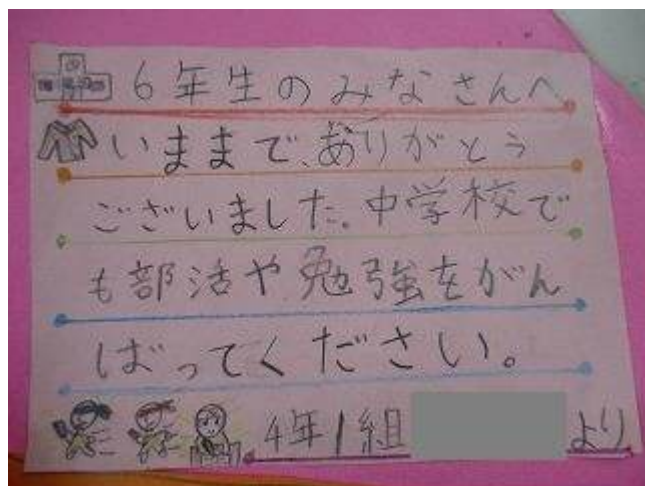 6年生のみなさんへ
いままで、ありがとう
ございました。中学校で
も部活や勉強をがん
ばってください。
4年1組 より